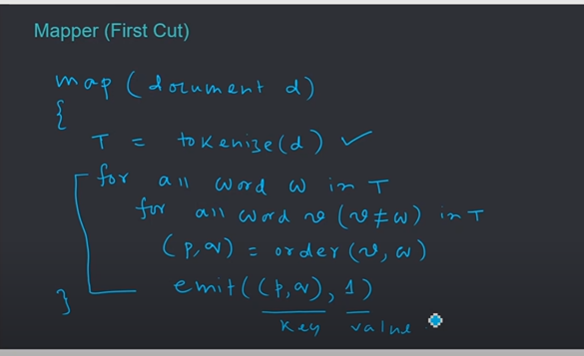 Mapper (First Cut)
map (document d)
{
T = tokenize(d) ✓
for all word w in T
for all word v (v ≠ w) in T
(p, q) = order (v, w)
emit ((p, q), 1)
}
key value